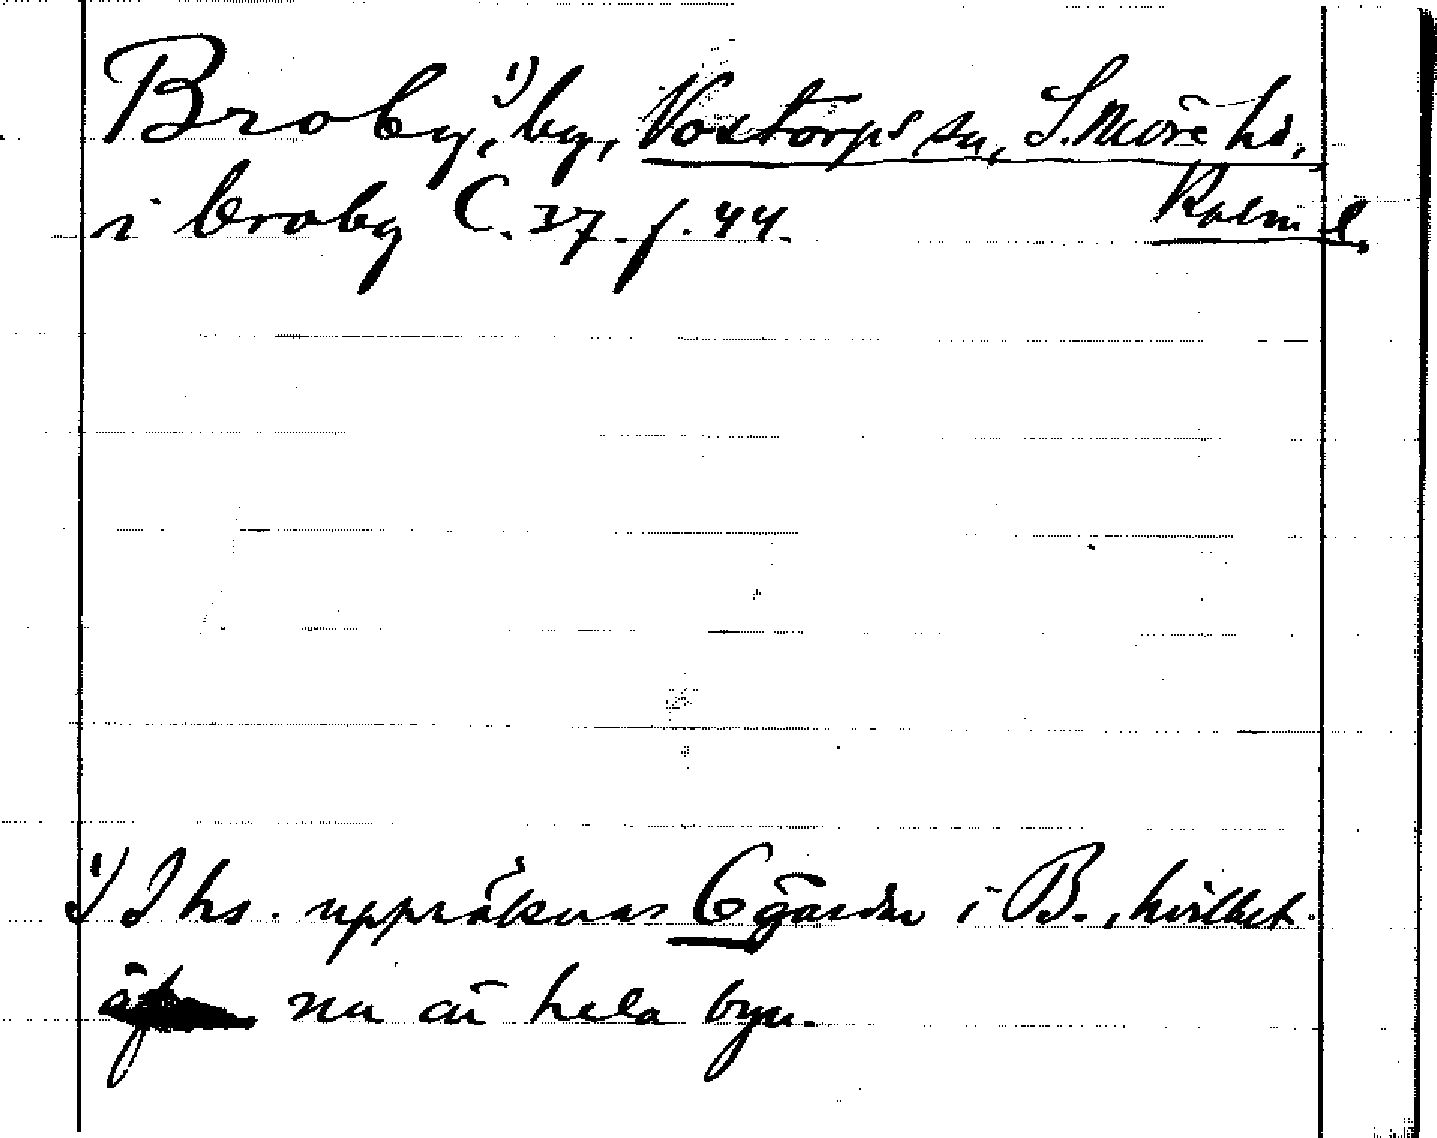 Broby,¹⁾ by, Voxtorps sn, S. Möre hd,
i broby C. 37. f. 44. Kalm. l.
¹⁾ I hs. uppräknas 6 gårdar i B., hvilket
nu är hela byn.